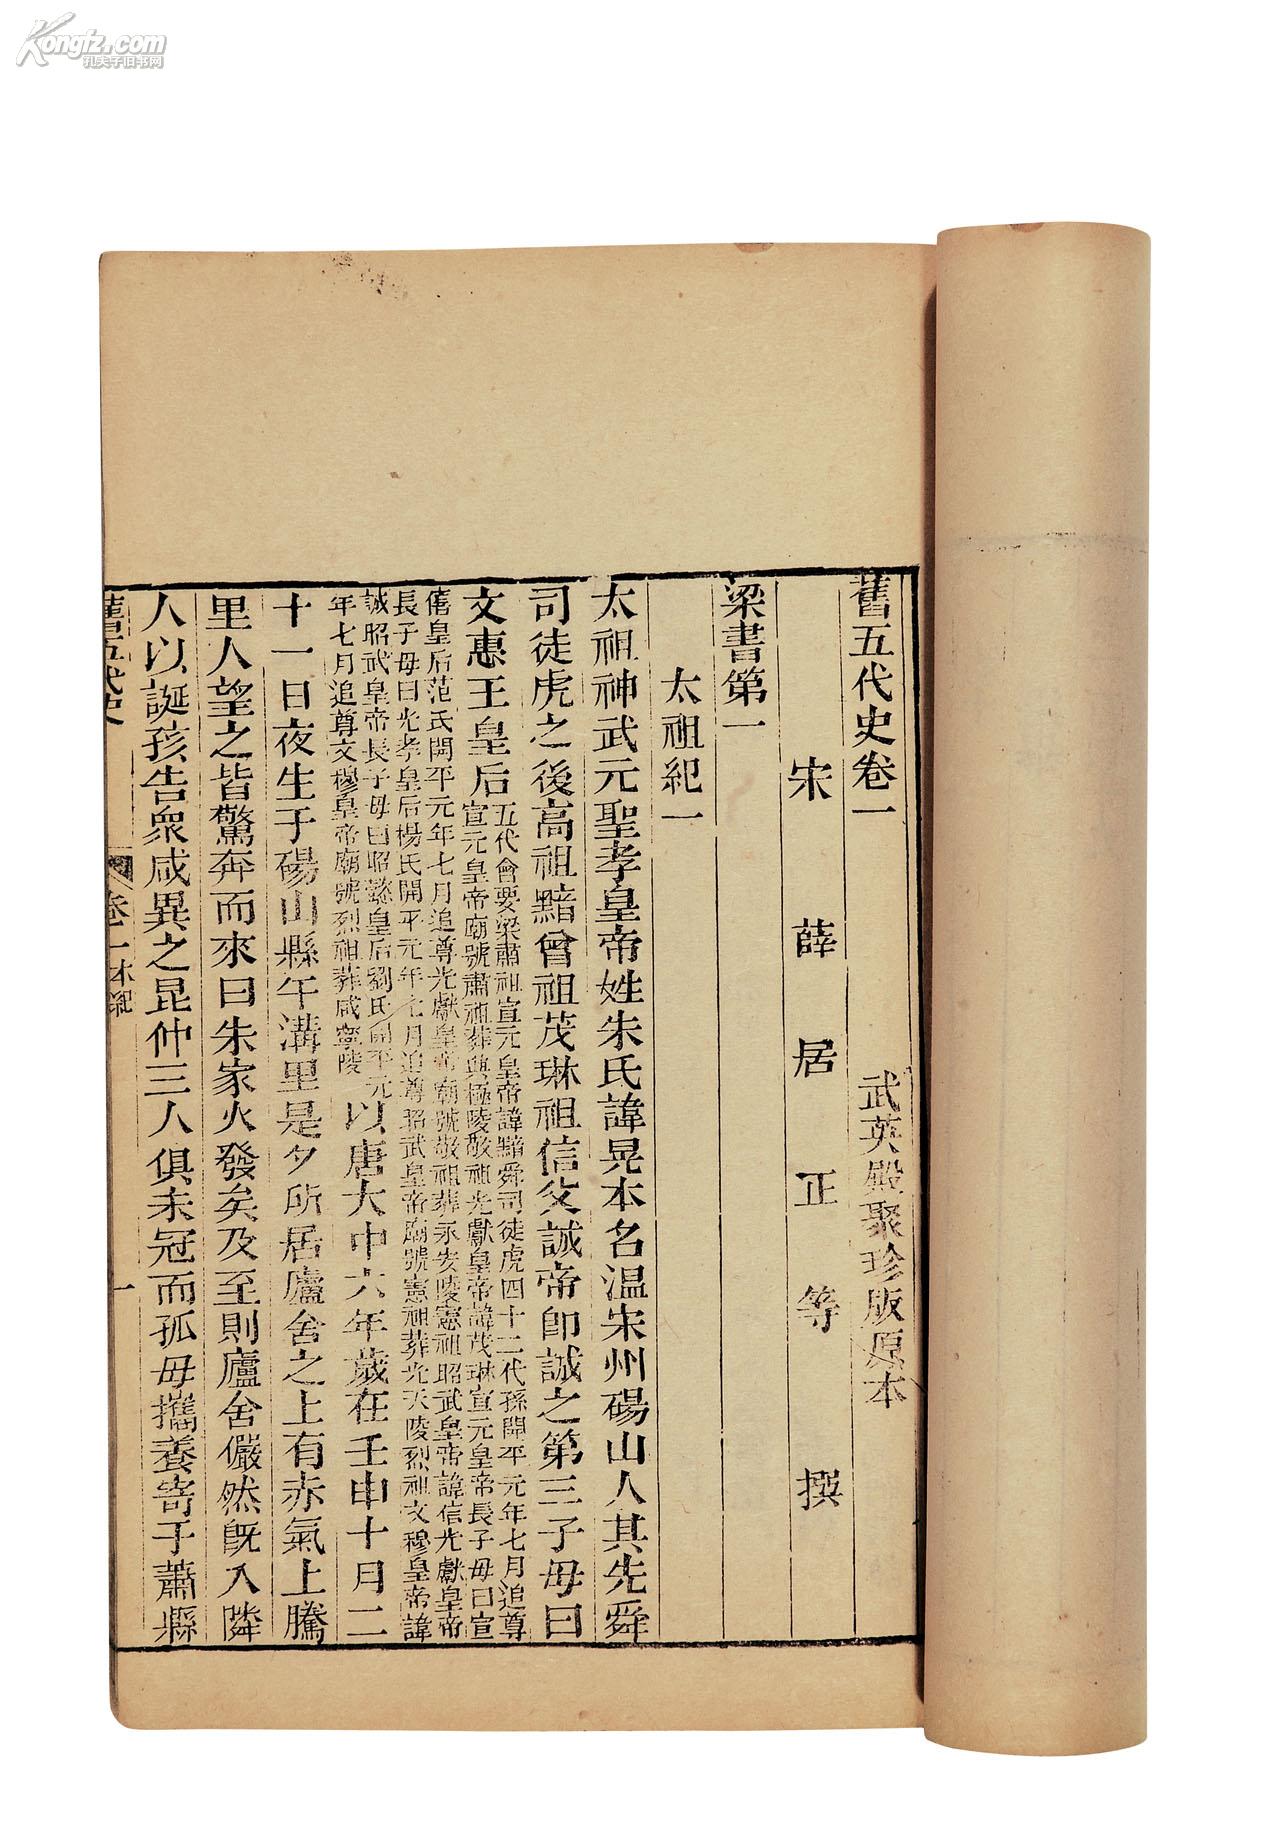 Kongfz.com
孔夫子旧书网
舊五代史卷一
武英殿聚珍版原本
宋 薛居正等 撰
梁書第一
太祖紀一
太祖神武元聖孝皇帝姓朱氏諱晃本名温宋州碭山人其先舜
司徒虎之後高祖黯曾祖茂琳祖信父誠帝即誠之第三子母曰
文惠王皇后
五代會要梁肅祖宣元皇帝諱黯舜司徒虎四十二代孫開平元年七月追尊
宣元皇帝廟號肅祖葬興極陵敬祖光獻皇帝諱茂琳宣元皇帝長子母曰宣
僖皇后范氏開平元年七月追尊光獻皇帝廟號敬祖葬永安陵憲祖昭武皇帝諱信光獻皇帝
長子母曰光孝皇后楊氏開平元年七月追尊昭武皇帝廟號憲祖葬光天陵烈祖文穆皇帝諱
誠昭武皇帝長子母曰昭懿皇后劉氏開平元
年七月追尊文穆皇帝廟號烈祖葬咸寧陵
以唐大中六年歲在壬申十月二
十一日夜生于碭山縣午溝里是夕所居廬舍之上有赤氣上騰
里人望之皆驚奔而來曰朱家火發矣及至則廬舍儼然旣入隣
人以誕孩告衆咸異之昆仲三人俱未冠而孤母攜養寄于蕭縣
舊五代史
卷一本紀
一